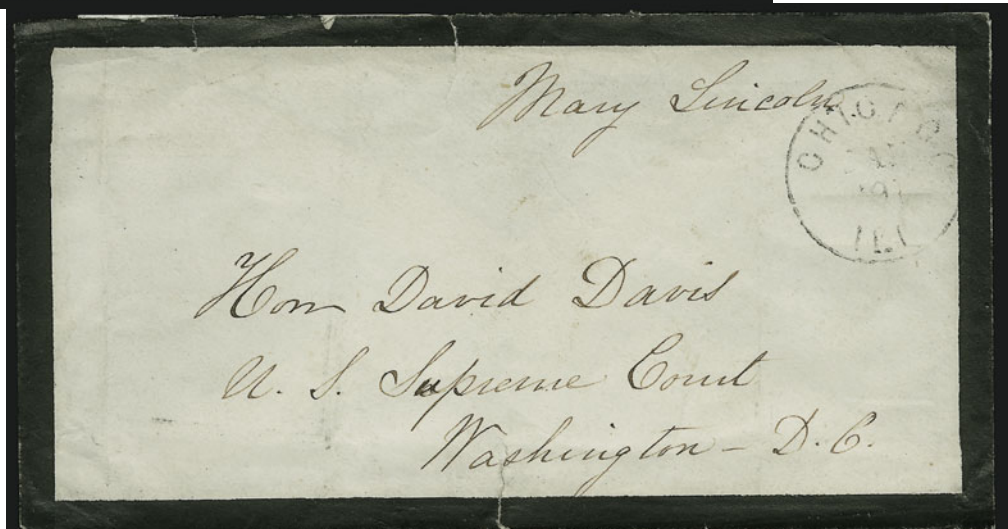 Mary Lincoln.
CHICAGO
ILL
Hon David Davis
U. S. Supreme Court
Washington - D. C.